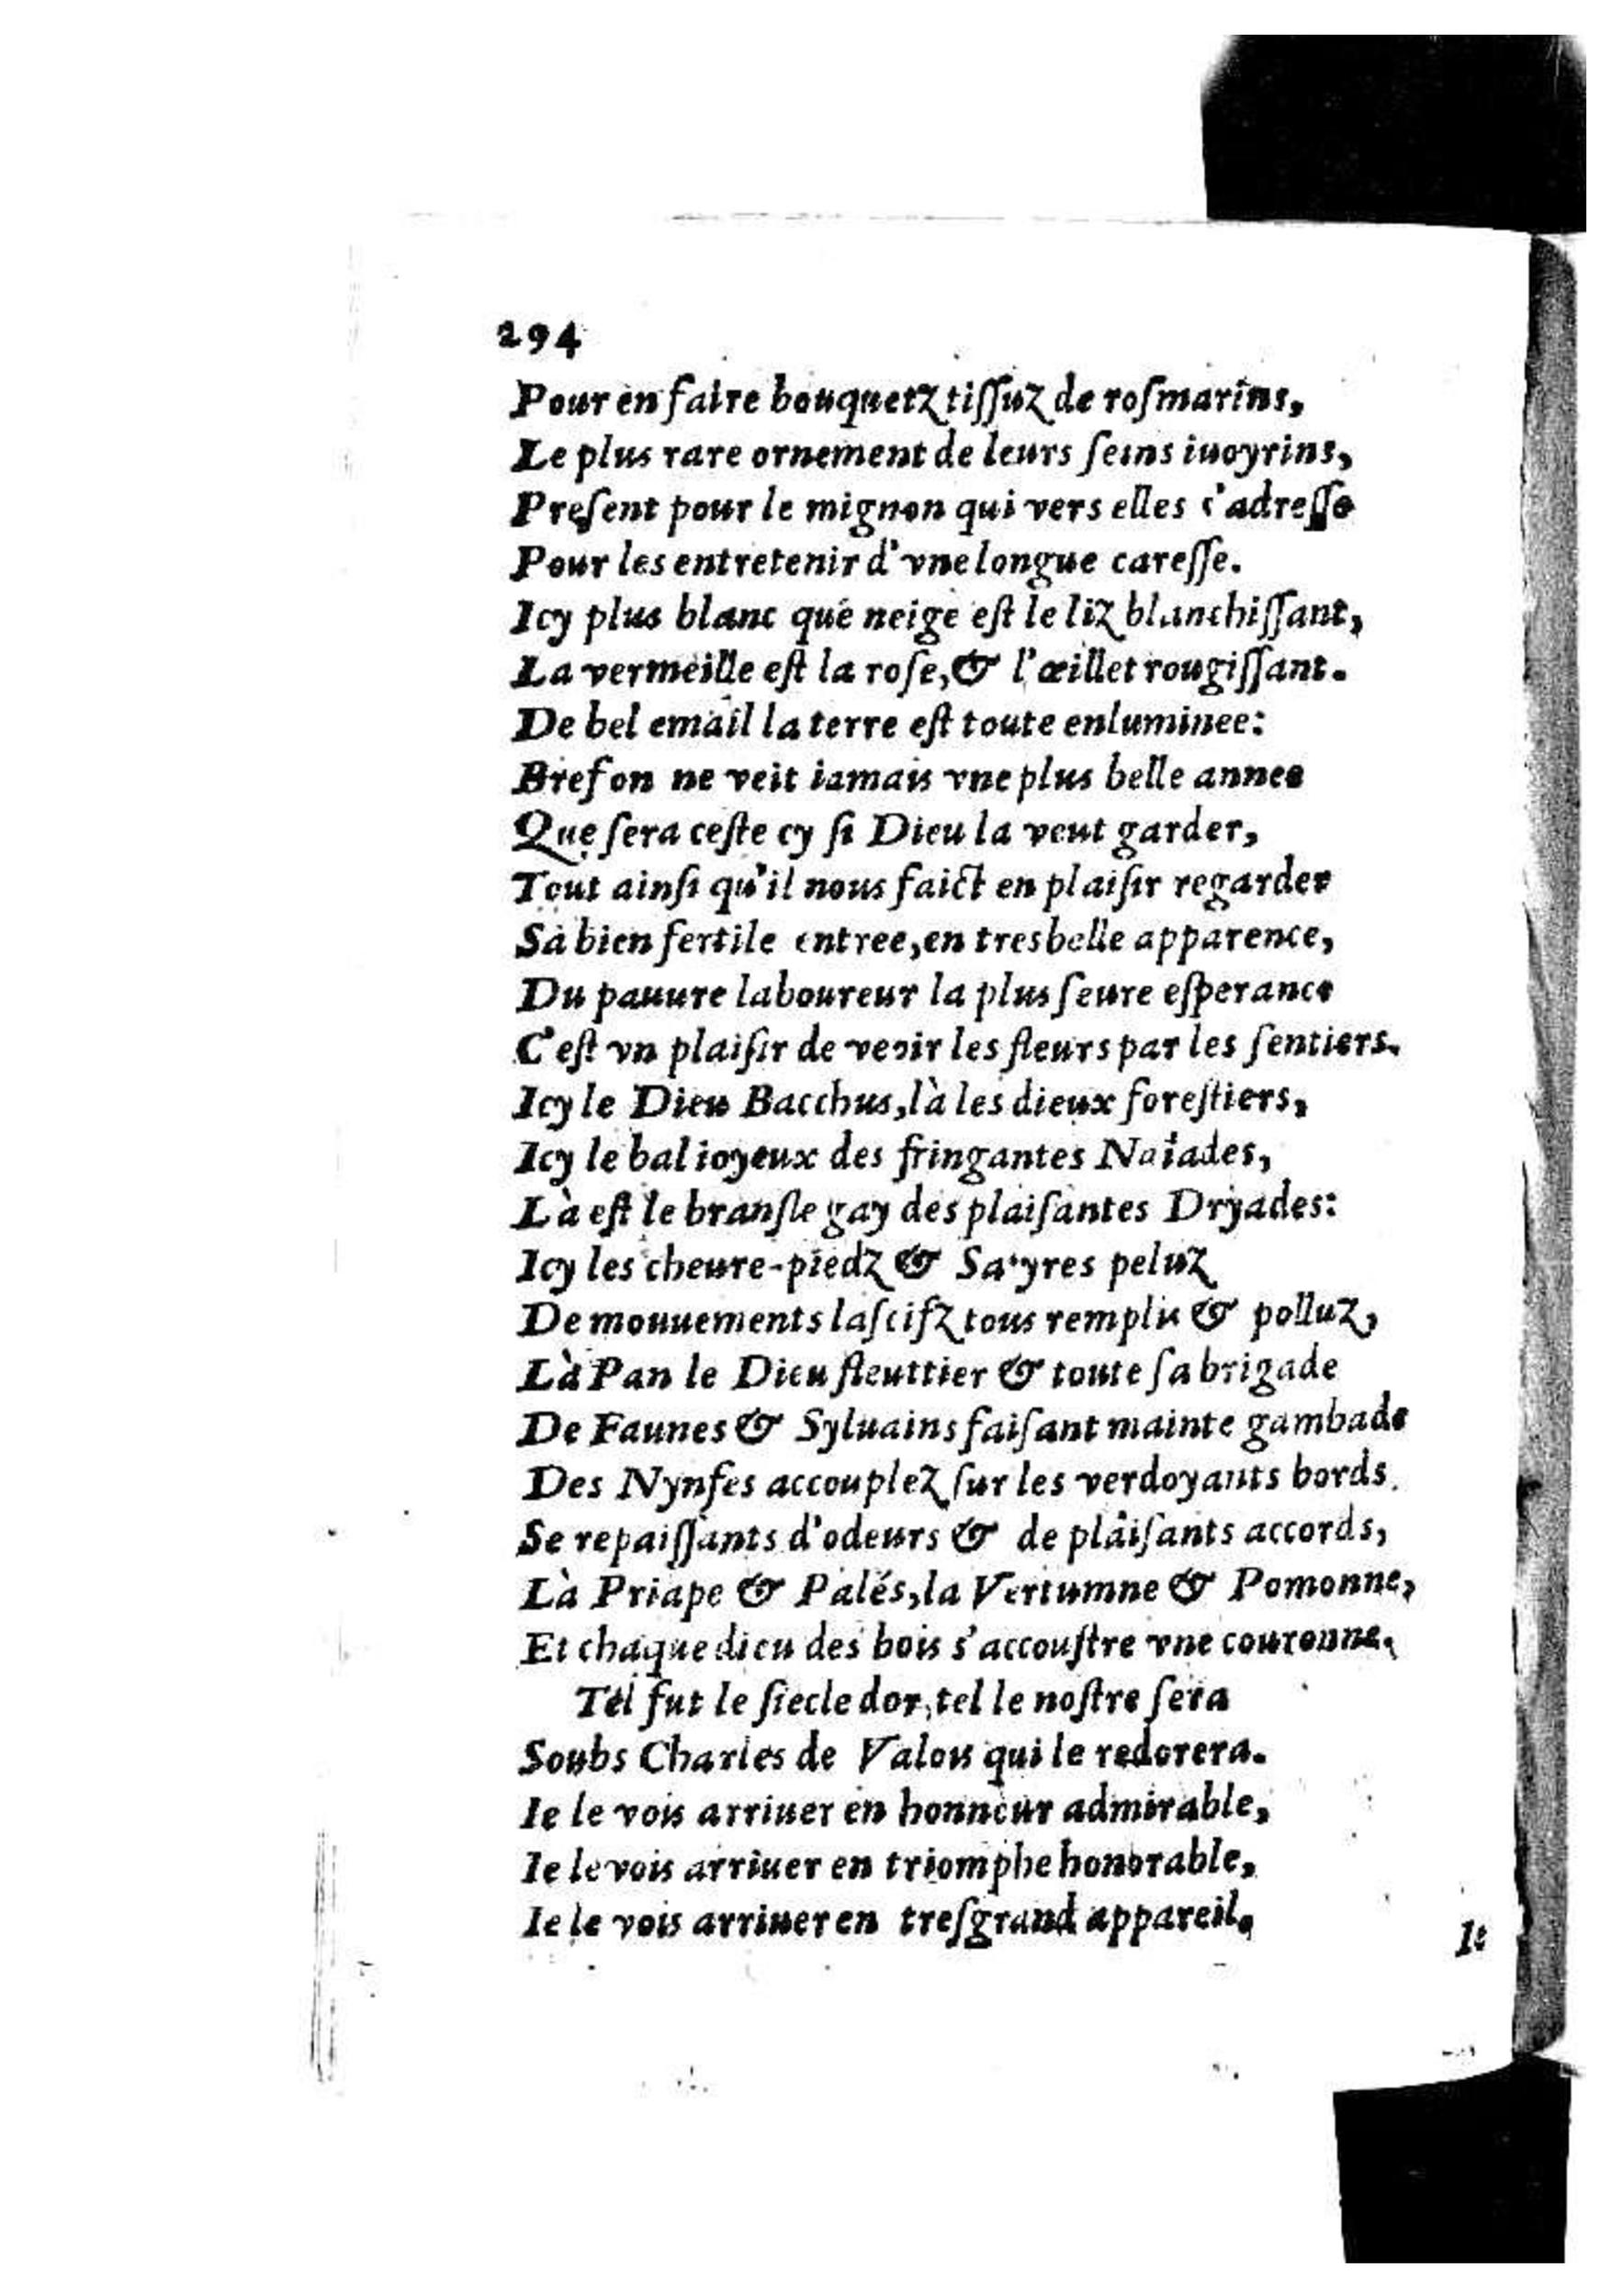 294
Pour en faire bouquetz tiſſuz de roſmarins,
Le plus rare ornement de leurs ſeins iuoyrins,
Preſent pour le mignon qui vers elles s'adreſſe
Pour les entretenir d'vne longue careſſe.
Icy plus blanc que neige eſt le liz blanchiſſant,
La vermeille eſt la roſe, & l'œillet rougiſſant.
De bel email la terre eſt toute enluminee:
Bref on ne veit iamais vne plus belle annee
Que ſera ceſte cy ſi Dieu la veut garder,
Tout ainſi qu'il nous faict en plaiſir regarder
Sa bien fertile entree, en tresbelle apparence,
Du pauure laboureur la plus ſeure eſperance
C'eſt vn plaiſir de veoir les fleurs par les ſentiers.
Icy le Dieu Bacchus, là les dieux foreſtiers,
Icy le bal ioyeux des fringantes Naïades,
Là eſt le branſle gay des plaiſantes Dryades:
Icy les cheure-piedz & Satyres peluz
De mouuements laſcifz tous remplis & polluz,
Là Pan le Dieu fleuttier & toute ſa brigade
De Faunes & Syluains faiſant mainte gambade
Des Nynfes accouplez ſur les verdoyants bords.
Se repaiſſants d'odeurs & de plaiſants accords,
Là Priape & Palés, la Vertumne & Pomonne,
Et chaque dieu des bois s'accouſtre vne couronne.
Tel fut le ſiecle dor, tel le noſtre ſera
Soubs Charles de Valois qui le redorera.
Ie le vois arriuer en honneur admirable,
Ie le vois arriuer en triomphe honorable,
Ie le vois arriuer en treſgrand appareil,
Ie